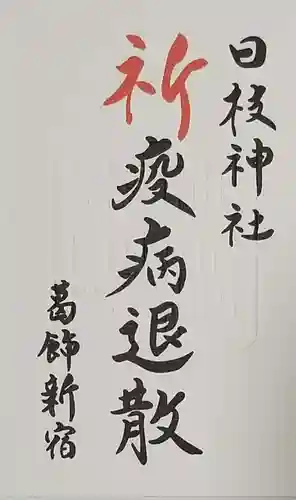 日枝神社
祈疫病退散
葛飾新宿